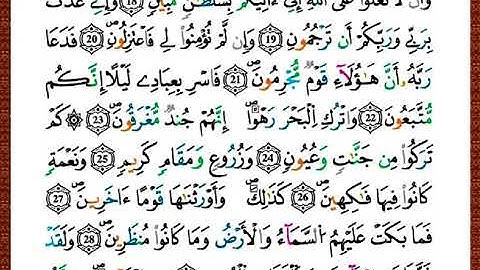 وَأَن لَّا تَعْلُوا۟ عَلَى ٱللَّهِ إِنِّىٓ ءَاتِيكُم بِسُلْطَٰنٍ مُّبِينٍ ۝١٩ وَإِنِّى عُذْتُ
بِرَبِّى وَرَبِّكُمْ أَن تَرْجُمُونِ ۝١٩ وَإِن لَّمْ تُؤْمِنُوا۟ لِى فَٱعْتَزِلُونِ ۝٢٠ فَدَعَا
رَبَّهُۥٓ أَنَّ هَٰٓؤُلَآءِ قَوْمٌ مُّجْرِمُونَ ۝٢١ فَأَسْرِ بِعِبَادِى لَيْلًا إِنَّكُم
مُّتَّبَعُونَ ۝٢٢ وَٱتْرُكِ ٱلْبَحْرَ رَهْوًا ۖ إِنَّهُمْ جُندٌ مُّغْرَقُونَ ۝٢٣ ۞ كَمْ
تَرَكُوا۟ مِن جَنَّٰتٍ وَعُيُونٍ ۝٢٤ وَزُرُوعٍ وَمَقَامٍ كَرِيمٍ ۝٢٥ وَنَعْمَةٍ
كَانُوا۟ فِيهَا فَٰكِهِينَ ۝٢٦ كَذَٰلِكَ ۖ وَأَوْرَثْنَٰهَا قَوْمًا ءَاخَرِينَ ۝٢٧
فَمَا بَكَتْ عَلَيْهِمُ ٱلسَّمَآءُ وَٱلْأَرْضُ وَمَا كَانُوا۟ مُنظَرِينَ ۝٢٨ وَلَقَدْ